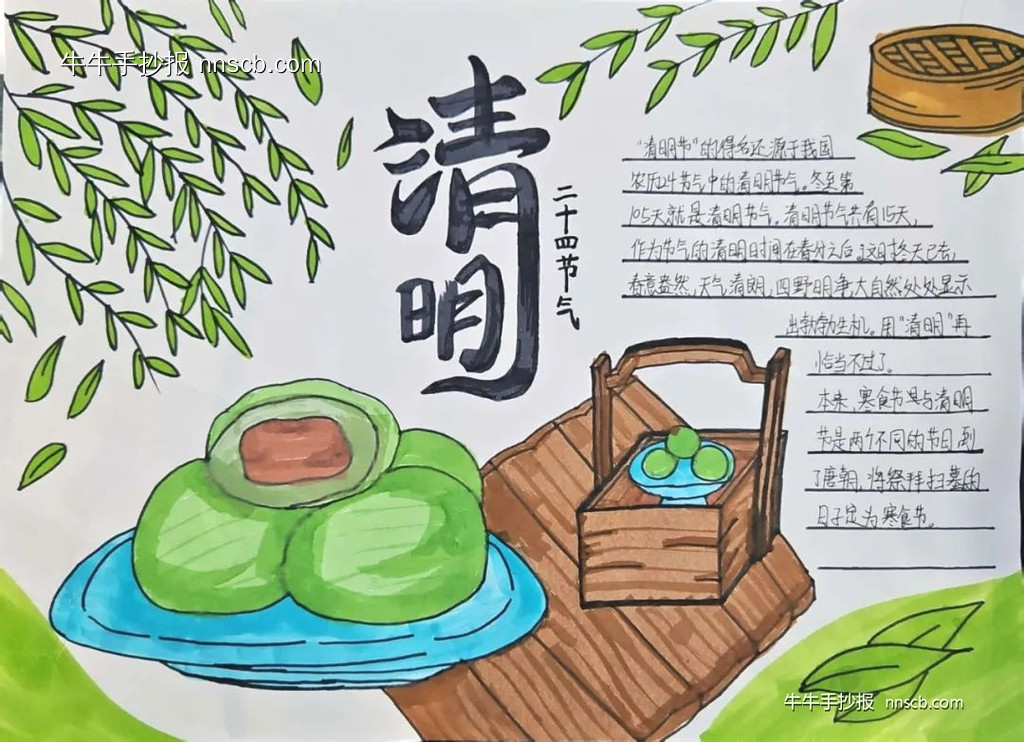 牛牛手抄报 nnscb.com
清明
二十四节气
"清明节"的得名还源于我国
农历24节气中的清明节气。冬至第
105天就是清明节气。清明节气共有15天,
作为节气的清明日时间在春分之后。这时冬天已去,
春意盎然,天气清朗,四野明净,大自然处处显示
出勃勃生机。用"清明"再
恰当不过了。
本来,寒食节是与清明
节是两个不同的节日,到
了唐朝,将祭拜扫墓的
日子定为寒食节。
牛牛手抄报 nnscb.com